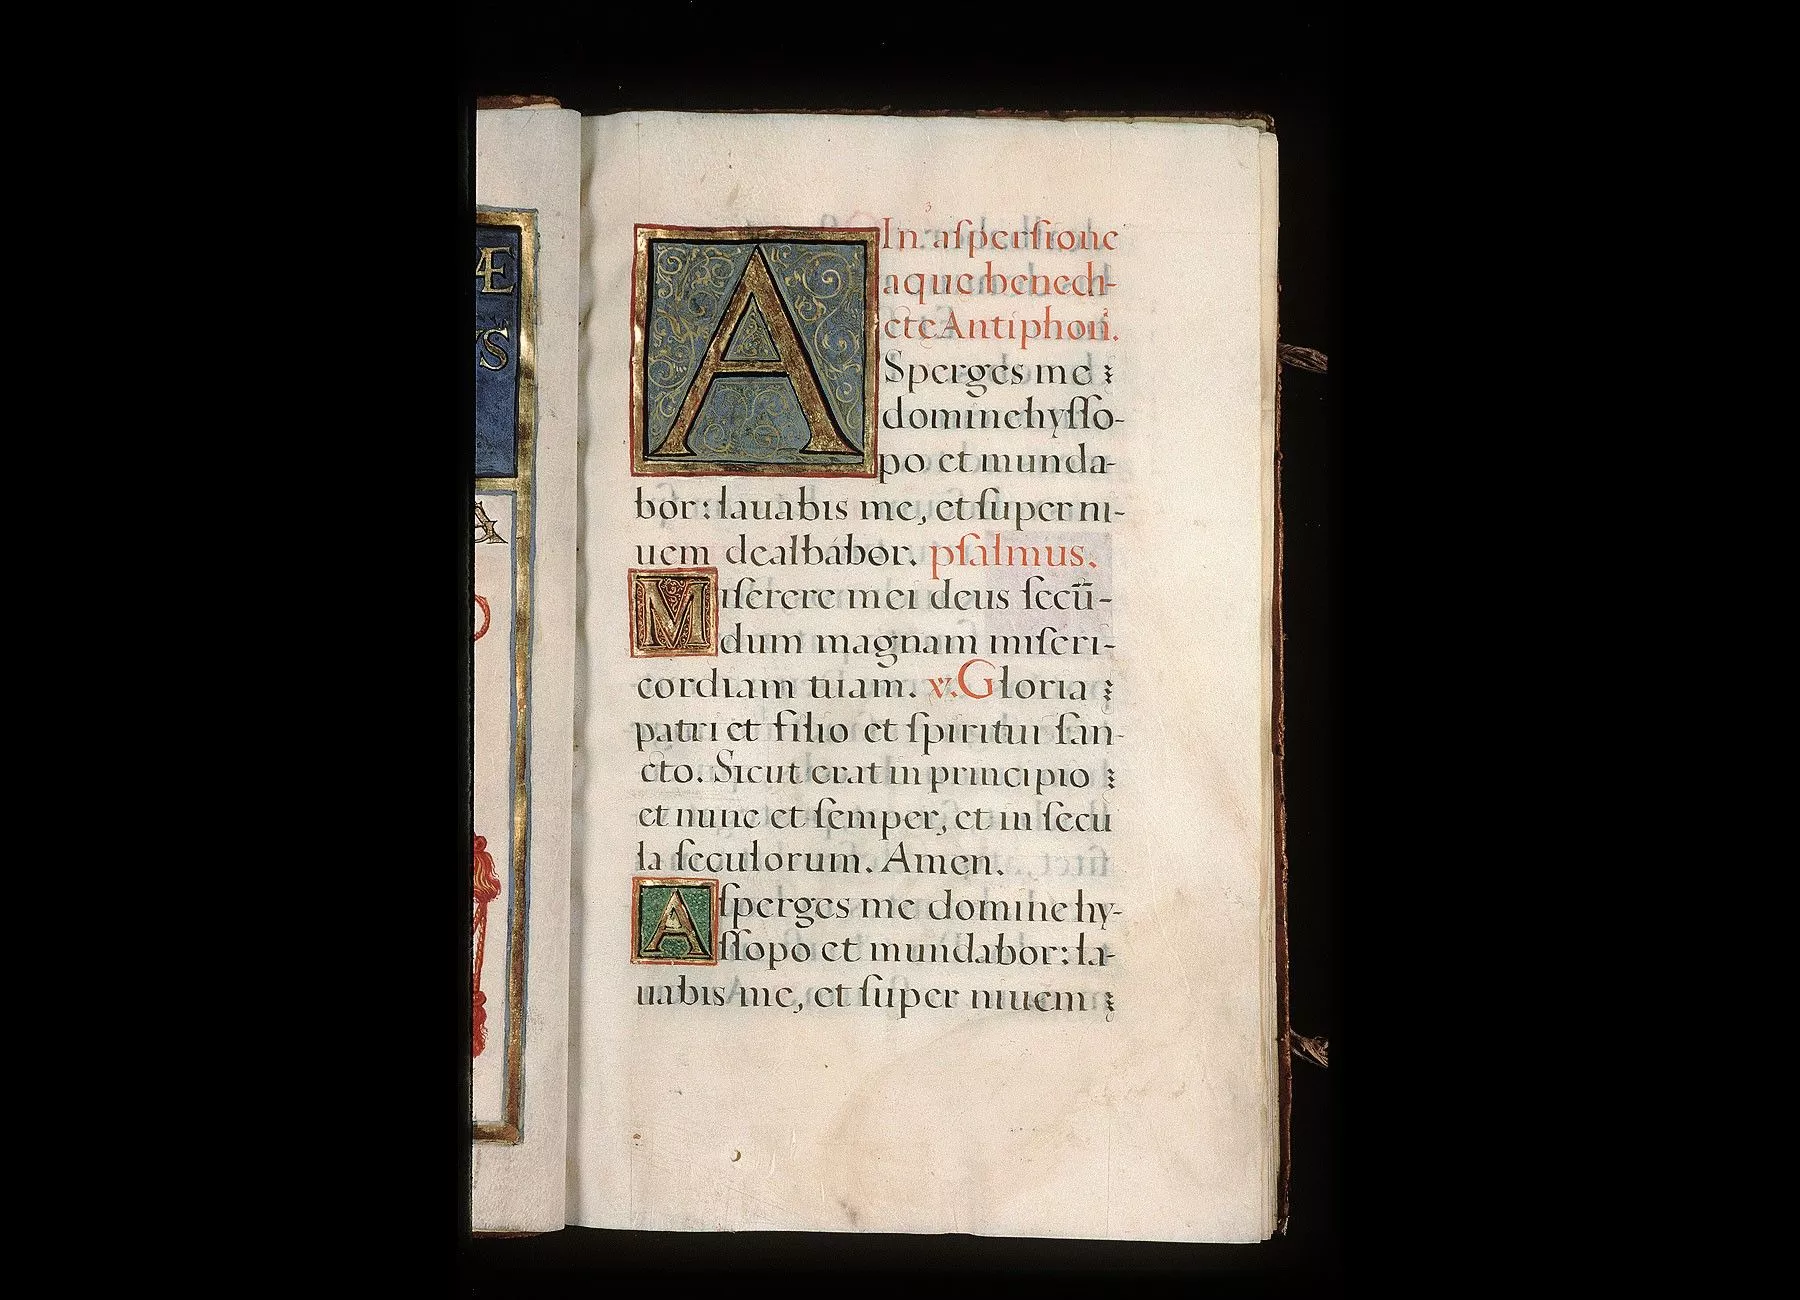 Æ
VS
A
3
In aſperſione
aque benedi-
cte Antiphoñ.
A Sperges me
domine hyſſo-
po et munda-
bor: lauabis me, et ſuper ni-
uem dealbábor. pſalmus.
Miſerere mei deus ſecū-
dum magnam miſeri-
cordiam tuam. v. Gloria
patri et filio et ſpiritui ſan-
cto. Sicut erat in principio
et nunc et ſemper, et in ſecu
la ſeculorum. Amen.
Aſperges me domine hy-
ſſopo et mundabor: la-
uabis me, et ſuper niuem